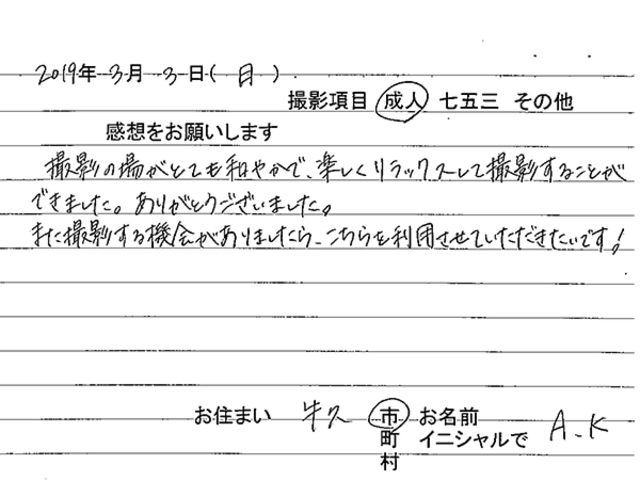 2019年 3月 3日( 日 )
撮影項目 成人 七五三 その他
感想をお願いします
撮影の場がとても和やかで、楽しくリラックスして撮影することが
できました。ありがとうございました。
また撮影する機会がありましたら、こちらを利用させていただきたいです!
お住まい 牛久 市 お名前
町 イニシャルで A.K
村